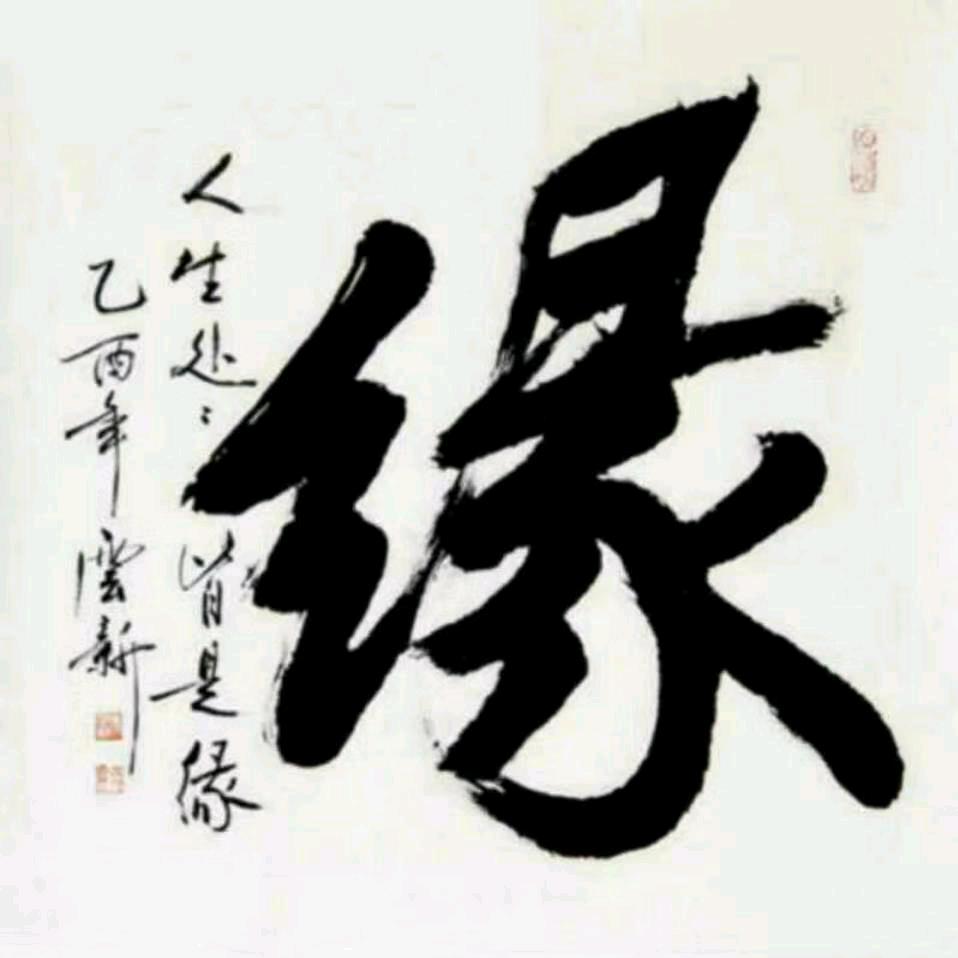 缘
人生处〻皆是缘
乙酉年雲新